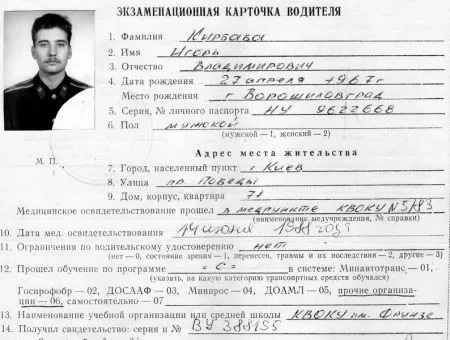 ЭКЗАМЕНАЦИОННАЯ КАРТОЧКА ВОДИТЕЛЯ
1. Фамилия Кирбаба
2. Имя Игорь
3. Отчество Владимирович
4. Дата рождения 27 апреля 1967 г
Место рождения г Ворошиловград
5. Серия, № личного паспорта НУ 9622668
6. Пол мужской
(мужской — 1, женский — 2)
Адрес места жительства
М. П.
7. Город, населенный пункт г Киев
8. Улица пр. Победы
9. Дом, корпус, квартира 71
Медицинское освидетельствование прошел в медпункте КВОКУ N 5/83
(наименование медучреждения, № справки)
10. Дата мед. освидетельствования 14 июня 1988 года
11. Ограничения по водительскому удостоверению нет
(нет — 0, состояние зрения — 1, перенесен. травмы и их последствия — 2, другие — 3)
12. Прошел обучение по программе "С" в системе: Минавтотранс — 01,
(указать, на какую категорию транспортных средств обучался)
Госпрофобр — 02, ДОСААФ — 03, Минпрос — 04, ДОАМЛ — 05, прочие организа-
ции — 06, самостоятельно — 07
13. Наименование учебной организации или средней школы КВОКУ им. Фрунзе
14. Получил свидетельство: серия и № ВУ 388155